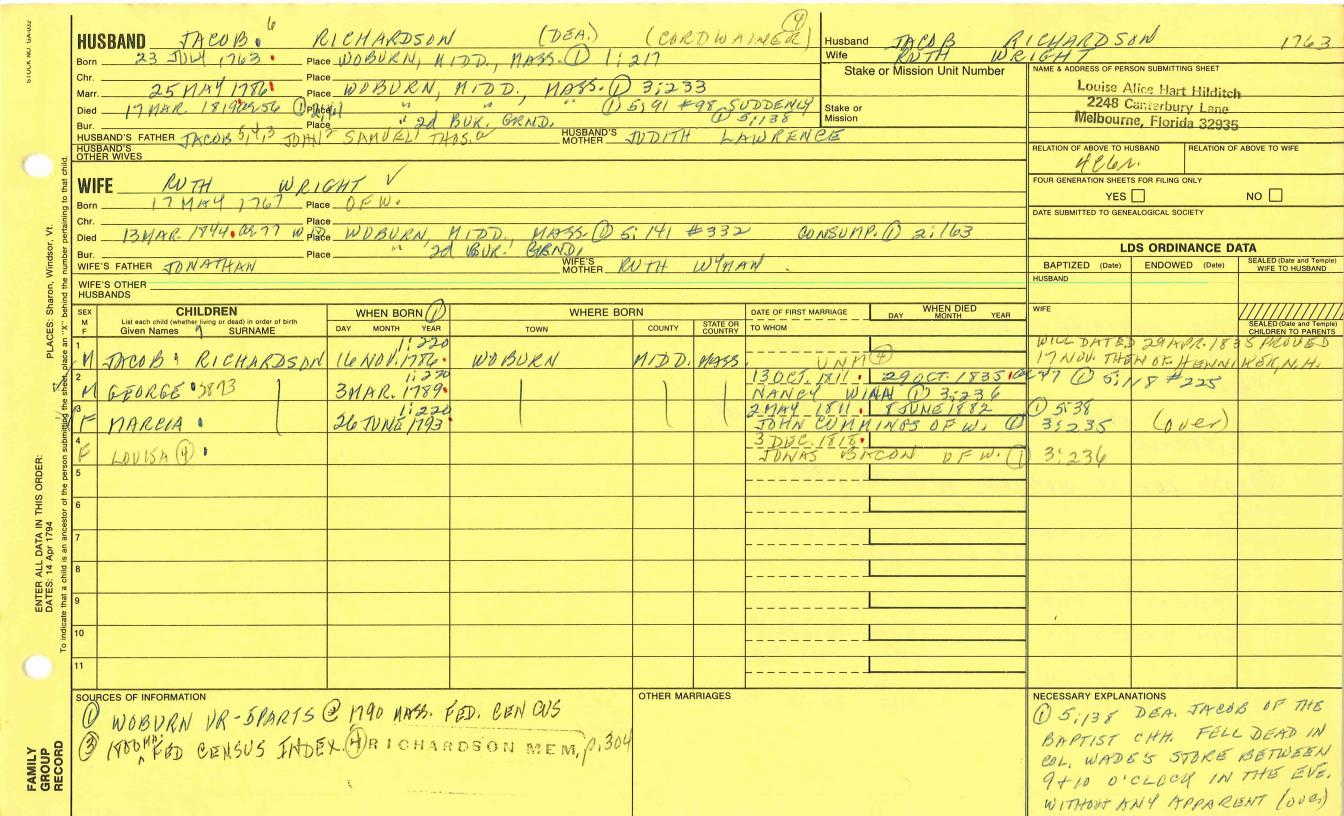 STOCK NO. GA-002
HUSBAND JACOB 6 RICHARDSON (DEA.) (CORDWAINER) (4)
Born 23 JULY 1763 Place WOBURN, MIDD., MASS. (1) 1:217
Chr. Place
Marr. 25 MAY 1786 Place WOBURN, MIDD, MASS. (1) 3:233
Died 17 MAR. 1819 ae 56 Place " " " (1) 5:91 #98 SUDDENLY
Bur. Place 2d BUR. GRND. (1) 5:138
HUSBAND'S FATHER JACOB 5,4,3 JOHN 2 SAMUEL 1 THOS. HUSBAND'S MOTHER JUDITH LAWRENCE
HUSBAND'S OTHER WIVES
Husband JACOB RICHARDSON 1763
Wife RUTH WRIGHT
Stake or Mission Unit Number
Stake or Mission
NAME & ADDRESS OF PERSON SUBMITTING SHEET
Louise Alice Hart Hilditch
2248 Canterbury Lane
Melbourne, Florida 32935
RELATION OF ABOVE TO HUSBAND RELATION OF ABOVE TO WIFE
FOUR GENERATION SHEETS FOR FILING ONLY
YES NO
DATE SUBMITTED TO GENEALOGICAL SOCIETY
WIFE RUTH WRIGHT ✓
Born 17 MAY 1767 Place OF W.
Chr. Place
Died 13 MAR. 1844 ae 77 WID. Place WOBURN, MIDD, MASS (1) 5:141 #332 CONSUMP. (1) 2:163
Bur. Place " 2d BUR. GRND.
WIFE'S FATHER JONATHAN WIFE'S MOTHER RUTH WYMAN
WIFE'S OTHER HUSBANDS
LDS ORDINANCE DATA
BAPTIZED (Date) ENDOWED (Date) SEALED (Date and Temple) WIFE TO HUSBAND
HUSBAND
WIFE
SEALED (Date and Temple) CHILDREN TO PARENTS
SEX M F
CHILDREN
List each child (whether living or dead) in order of birth
Given Names 7 SURNAME
WHEN BORN (1)
DAY MONTH YEAR
WHERE BORN
TOWN COUNTY STATE OR COUNTRY
DATE OF FIRST MARRIAGE
TO WHOM
WHEN DIED
DAY MONTH YEAR
1:220 WILL DATED 29 APR. 1835 PROVED
1 M JACOB RICHARDSON 16 NOV. 1786 WOBURN MIDD. MASS. UNM (4) 17 NOV. THEN OF HENNIKER, N.H.
1:220 13 OCT. 1811 29 OCT. 1835 ae 47 (1) 5:118 #225
2 M GEORGE 3873 3 MAR. 1789 NANCY WINN (1) 3:236
1:220 2 MAY 1811 8 JUNE 1882 (1) 5:38
3 F MARCIA 26 JUNE 1793 JOHN CUMMINGS OF W. (1) 3:235 (over)
3 DEC. 1818
4 F LOUISA (4) JONAS BACON OF W. (1) 3:236
5
6
7
8
9
10
11
SOURCES OF INFORMATION
(1) WOBURN VR-5PARTS (2) 1790 MASS. FED. CENSUS
(3) FED CENSUS INDEX. (4) RICHARDSON MEM, p.304
OTHER MARRIAGES
NECESSARY EXPLANATIONS
(1) 5:138 DEA. JACOB OF THE
BAPTIST CHH. FELL DEAD IN
COL. WADE'S STORE BETWEEN
9+10 O'CLOCK IN THE EVE.
WITHOUT ANY APPARENT (over)
ENTER ALL DATA IN THIS ORDER:
DATES: 14 Apr 1794
PLACES: Sharon, Windsor, Vt.
To indicate that a child is an ancestor of the person submitting the sheet, place an "X" behind the number pertaining to that child.
FAMILY GROUP RECORD